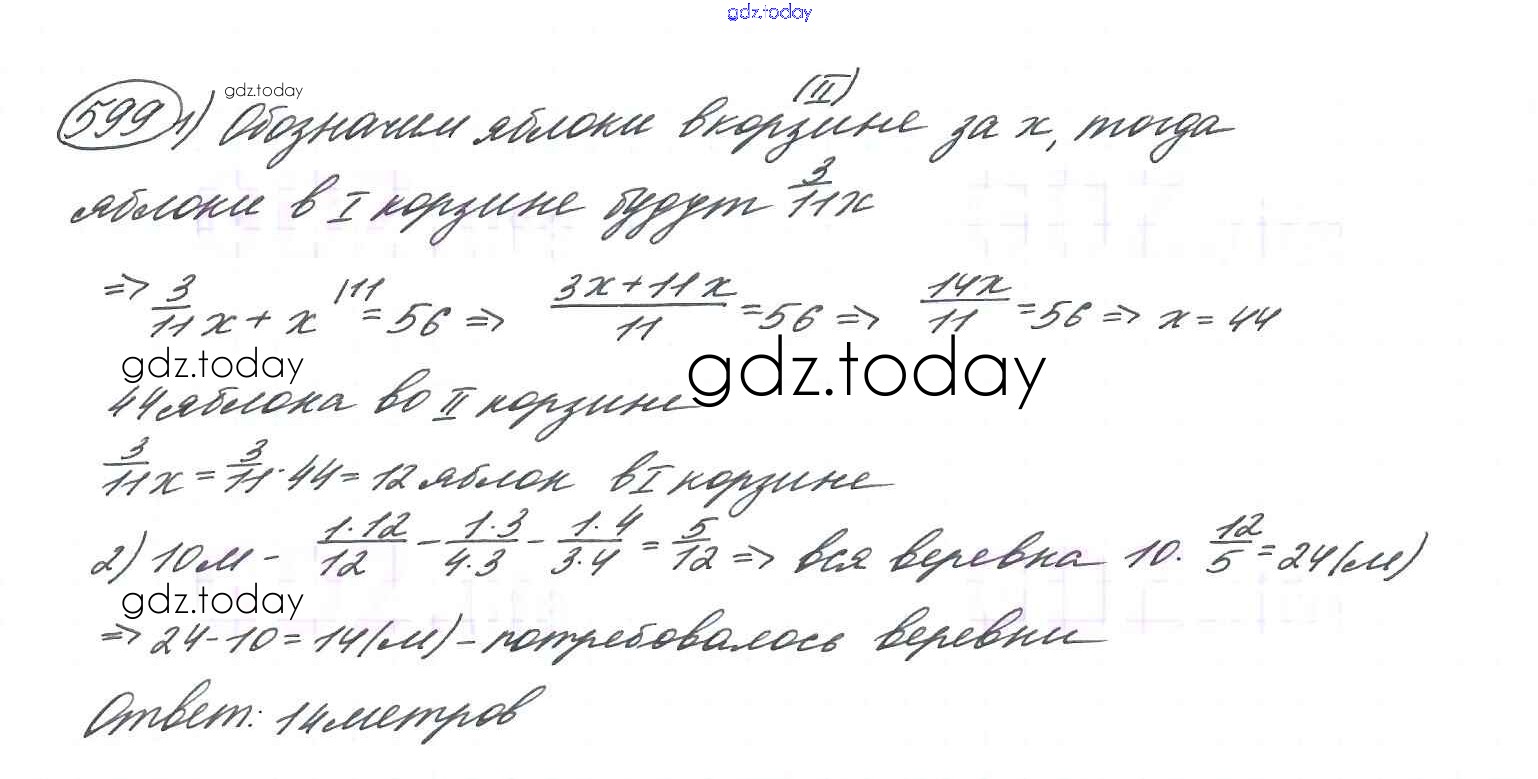 gdz.today
gdz.today
(II)
599 1) Обозначим яблоки в корзине за x, тогда
яблоки в I корзине будут 3/11 x
=> 3/11 x + x |11 = 56 => (3x + 11x)/11 = 56 => 14x/11 = 56 => x = 44
gdz.today gdz.today
44 яблока во II корзине
3/11 x = 3/11 · 44 = 12 яблок в I корзине
2) 10 м - (1·12)/12 - (1·3)/(4·3) - (1·4)/(3·4) = 5/12 => вся веревка 10 · 12/5 = 24 (м)
gdz.today
=> 24 - 10 = 14 (м) - потребовалось веревки
Ответ: 14 метров